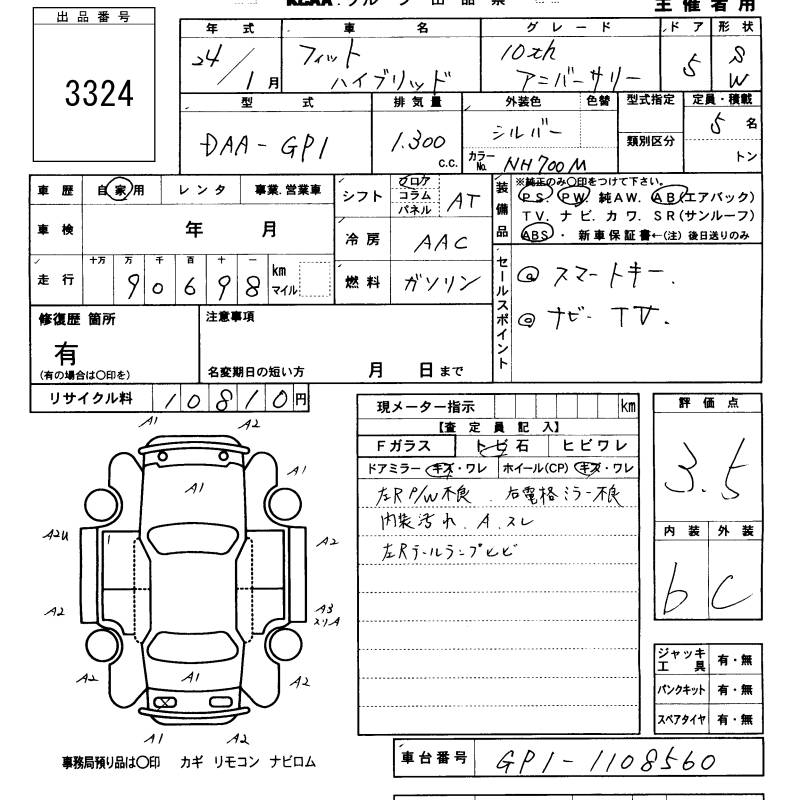 主催者用
出品番号
3324
年式 車名 グレード ドア 形状
24/1月 フィット ハイブリッド 10th アニバーサリー 5 SW
型式 排気量 外装色 色替 型式指定 定員・積載
DAA-GP1 1.300 c.c. シルバー 類別区分 5名
カラーNo. NH700M トン
車歴 自家用 レンタ 事業.営業車
車検 年 月
走行 十万 万 千 百 十 一
90698 km マイル
シフト フロア コラム パネル AT
冷房 AAC
燃料 ガソリン
装備品 ※純正のみ〇印をつけて下さい。
PS. PW. 純AW. AB(エアバック)
TV. ナビ. カワ. SR(サンルーフ)
ABS ・ 新車保証書←(注) 後日送りのみ
セールスポイント
@ スマートキー.
@ ナビ- TV.
修復歴 箇所
有
(有の場合は〇印を)
注意事項
名変期日の短い方 月 日まで
リサイクル料 10810円
現メーター指示 km
【査定員記入】
Fガラス トビ石 ヒビワレ
ドアミラー キズ・ワレ ホイール(CP) キズ・ワレ
左R P/W不良. 右電格ミラー不良
内装汚れ. A. スレ
左Rテールランプヒビ
評価点
3.5
内装 外装
b C
ジャッキ工具 有・無
パンクキット 有・無
スペアタイヤ 有・無
A1 A2
A1 A1
A2U A2
A2 A3
A2 A1 A2
A1 A2
事務局預り品は〇印 カギ リモコン ナビロム
車台番号 GP1-1108560